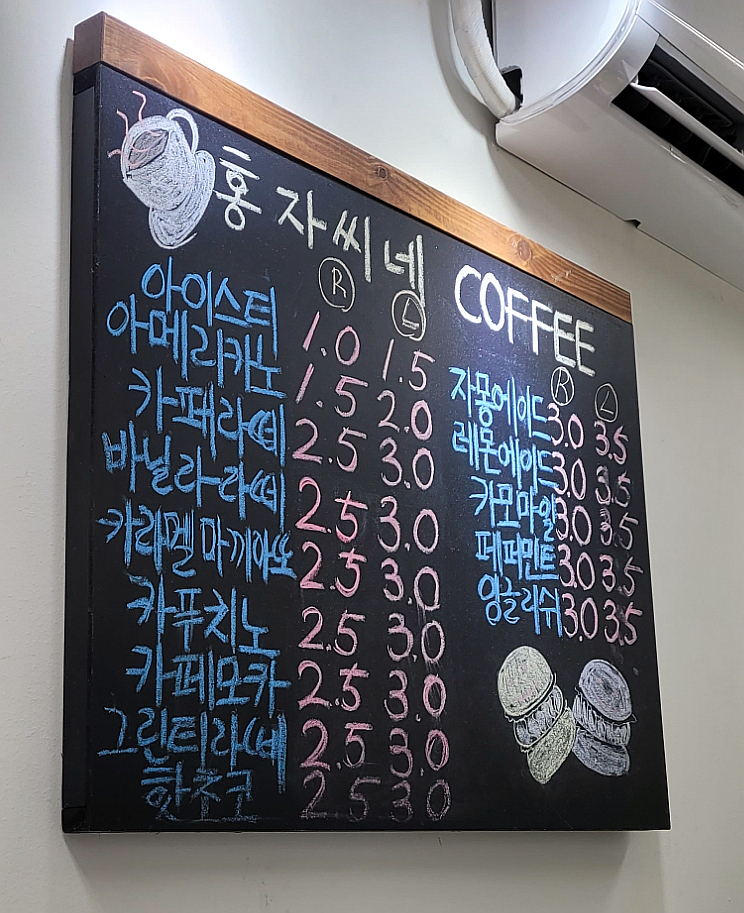 홍자씨네 COFFEE
R L
아이스티 1.0 1.5
아메리카노 1.5 2.0
카페라떼 2.5 3.0
바닐라라떼 2.5 3.0
카라멜 마끼아또 2.5 3.0
카푸치노 2.5 3.0
카페모카 2.5 3.0
그린티라떼 2.5 3.0
핫초코 2.5 3.0
R L
자몽에이드 3.0 3.5
레몬에이드 3.0 3.5
카모마일 3.0 3.5
페퍼민트 3.0 3.5
잉글리쉬 3.0 3.5